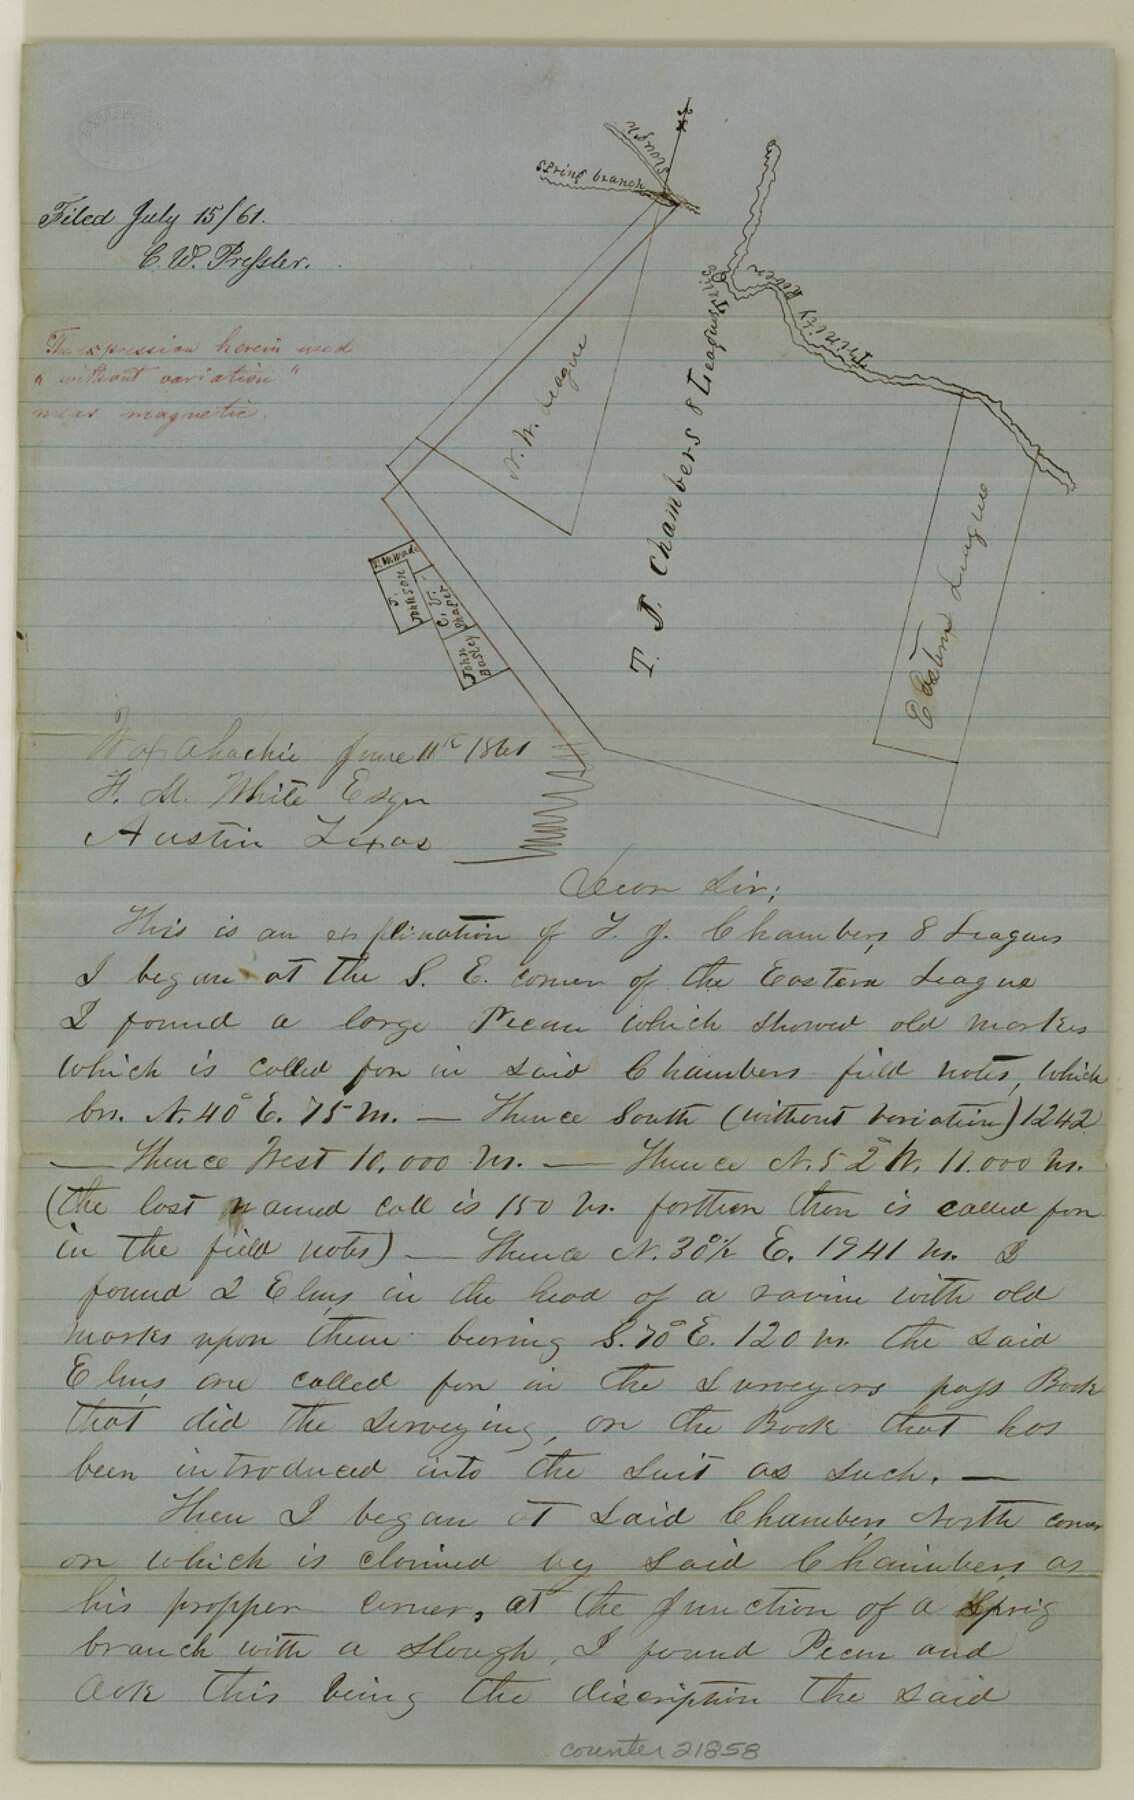 Slough
Spring branch
Trinity River
Filed July 15/61.
C. W. Pressler.
The expression herein used
"without variation"
means magnetic.
N. W. League
T. J. Chambers 8 Leagues
Eastern League
T. M. Wade
J. Johnson
John Basley
Waxahachie June 11th 1861
F. M. White Esqr
Austin Texas
Dear Sir;
This is an explination of T. J. Chambers 8 Leagues
I began at the S. E. corner of the Eastern League
I found a large Pecan which showed old markes
which is called for in said Chambers field notes, which
brs. N. 40° E. 75 vs. — Thence South (without variation) 1242
— Thence West 10,000 vs. — Thence N. 52° W. 11.000 vs.
(the last named call is 150 vs. farther than is called for
in the field notes) — Thence N. 30°½ E. 1941 vs. I
found 2 Elms in the head of a ravine with old
marks upon them bearing S. 70° E. 120 vs. the said
Elms are called for in the Surveyors pass Book
that did the surveying, or the Book that has
been introduced into the suit as such. —
Then I began at said Chambers North corner
or which is claimed by said Chambers as
his propper corner, at the junction of a Sprig
branch with a slough, I found Pecan and
Aok this being the discription the said
counter 21858